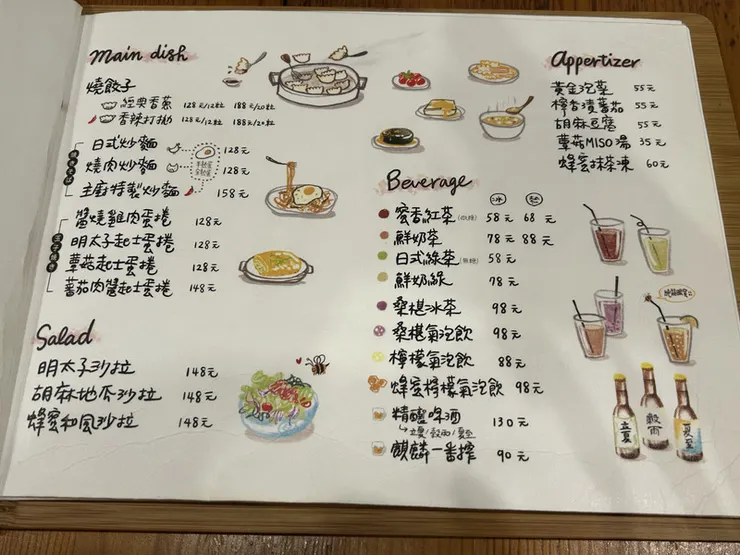 Main dish
燒餃子
經典香蔥 128元/12粒 188元/20粒
香辣打拋 128元/12粒 188元/20粒
日式炒麵 128元
燒肉炒麵 128元
主廚特製炒麵 158元
醬燒雞肉蛋捲 128元
明太子起士蛋捲 128元
蕈菇起士蛋捲 128元
蕃茄肉醬起士蛋捲 148元
Salad
明太子沙拉 148元
胡麻地瓜沙拉 148元
蜂蜜和風沙拉 148元
Appertizer
黃金泡菜 55元
檸香漬蕃茄 55元
胡麻豆腐 55元
蕈菇MISO湯 35元
蜂蜜抹茶凍 60元
Beverage
冰 熱
蜜香紅茶 58元 68元
鮮奶茶 78元 88元
日式綠茶(無糖) 58元
鮮奶綠 78元
桑椹冰茶 98元
桑椹氣泡飲 98元
檸檬氣泡飲 88元
蜂蜜檸檬氣泡飲 98元
精釀啤酒 130元
立夏/穀雨/夏至
麒麟一番搾 90元
立夏
穀雨
夏至